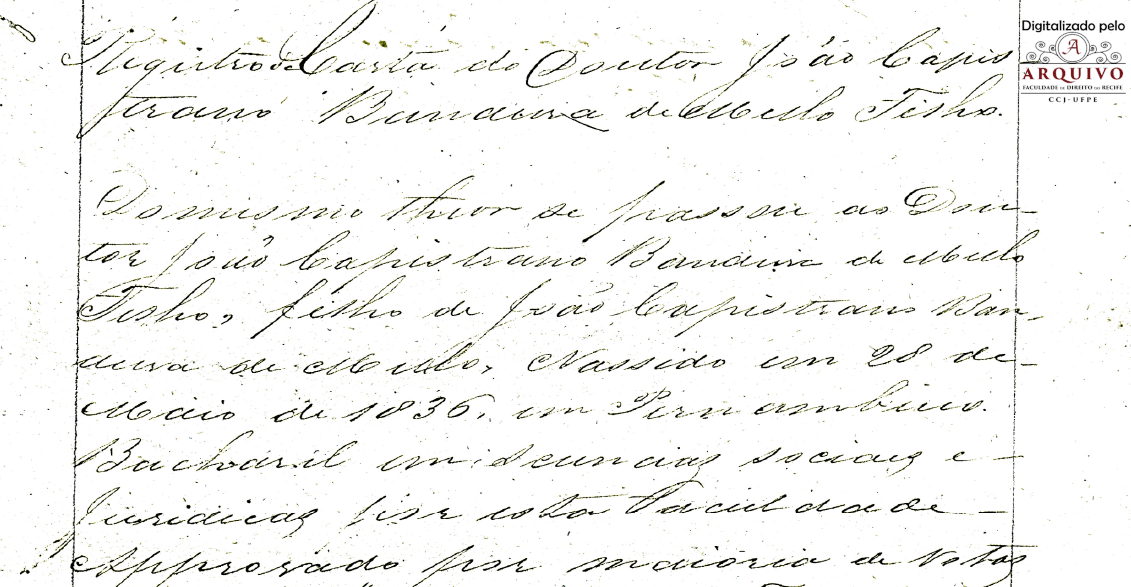 Digitalizado pelo
A
ARQUIVO
FACULDADE DE DIREITO DO RECIFE
CCJ-UFPE
Registro da Carta do Doutor João Capis-
trano Bandeira de Mello Filho.
Do mesmo theor se passou ao Dou-
tor João Capistrano Bandeira de Mello
Filho, filho de João Capistrano Ban-
deira de Mello, Nassido em 28 de
Maio de 1836, em Pernambuco.
Bacharel em Sciencias sociaes e
Juridicas por esta Faculdade
Approvado por maioria de Votos